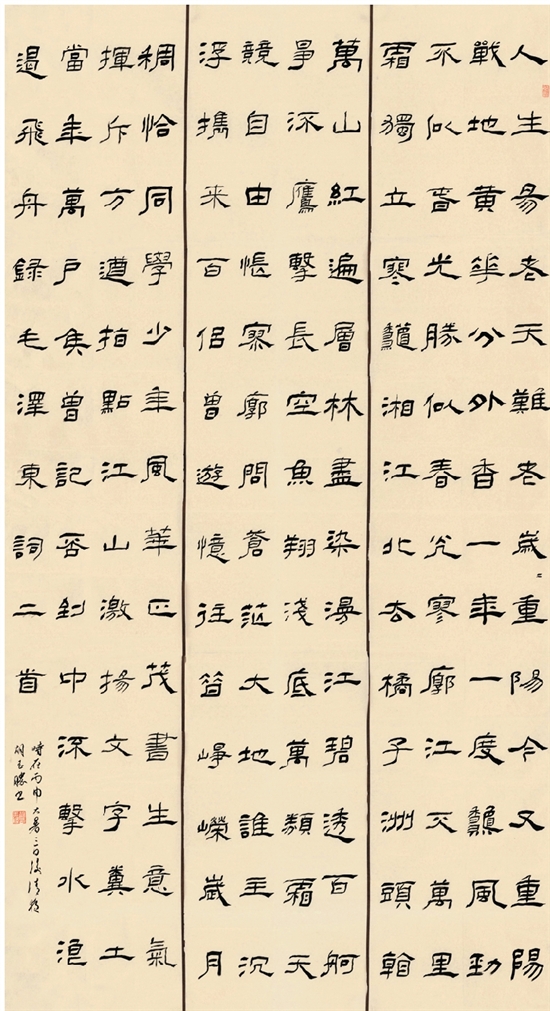 人生易老天難老歲〻重陽今又重陽
戰地黃華分外香一年一度龝風勁
不似春光勝似春光寥廓江天萬里
霜獨立寒龝湘江北去橘子洲頭看
萬山紅遍層林盡染漫江碧透百舸
爭流鷹擊長空魚翔淺底萬類霜天
競自由悵寥廓問蒼茫大地誰主沉
浮攜来百侣曾遊憶往昔崢嶸歲月
稠恰同學少年風華正茂書生意氣
揮斥方遒指點江山激揚文字糞土
當年萬户矦曾記否到中流擊水浪
遏飛舟録毛澤東詞二首
時在丙申大暑三日後